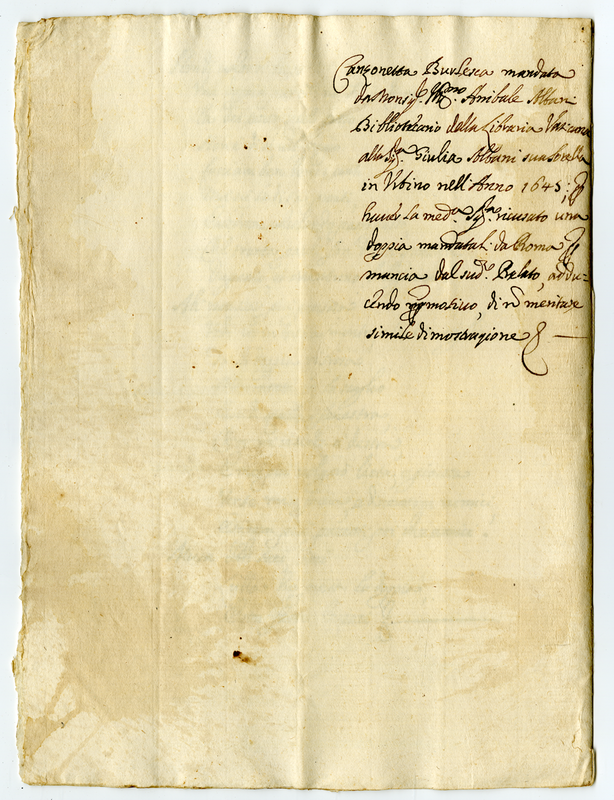 Canzonetta Burlesca mandata
da Monsig.r Ill.mo Anibale Albani
Bibliotecario della Libraria Vaticana
alla Sig.ra Giulia Albani sua sorella
in Urbino nell'Anno 1645: p
haver la med.a Sig.ra ricusato una
doppia mandatali da Roma p
mancia dal sud.o Prelato, addu=
cendo p motivo, di nō meritare
simile dimostrazione